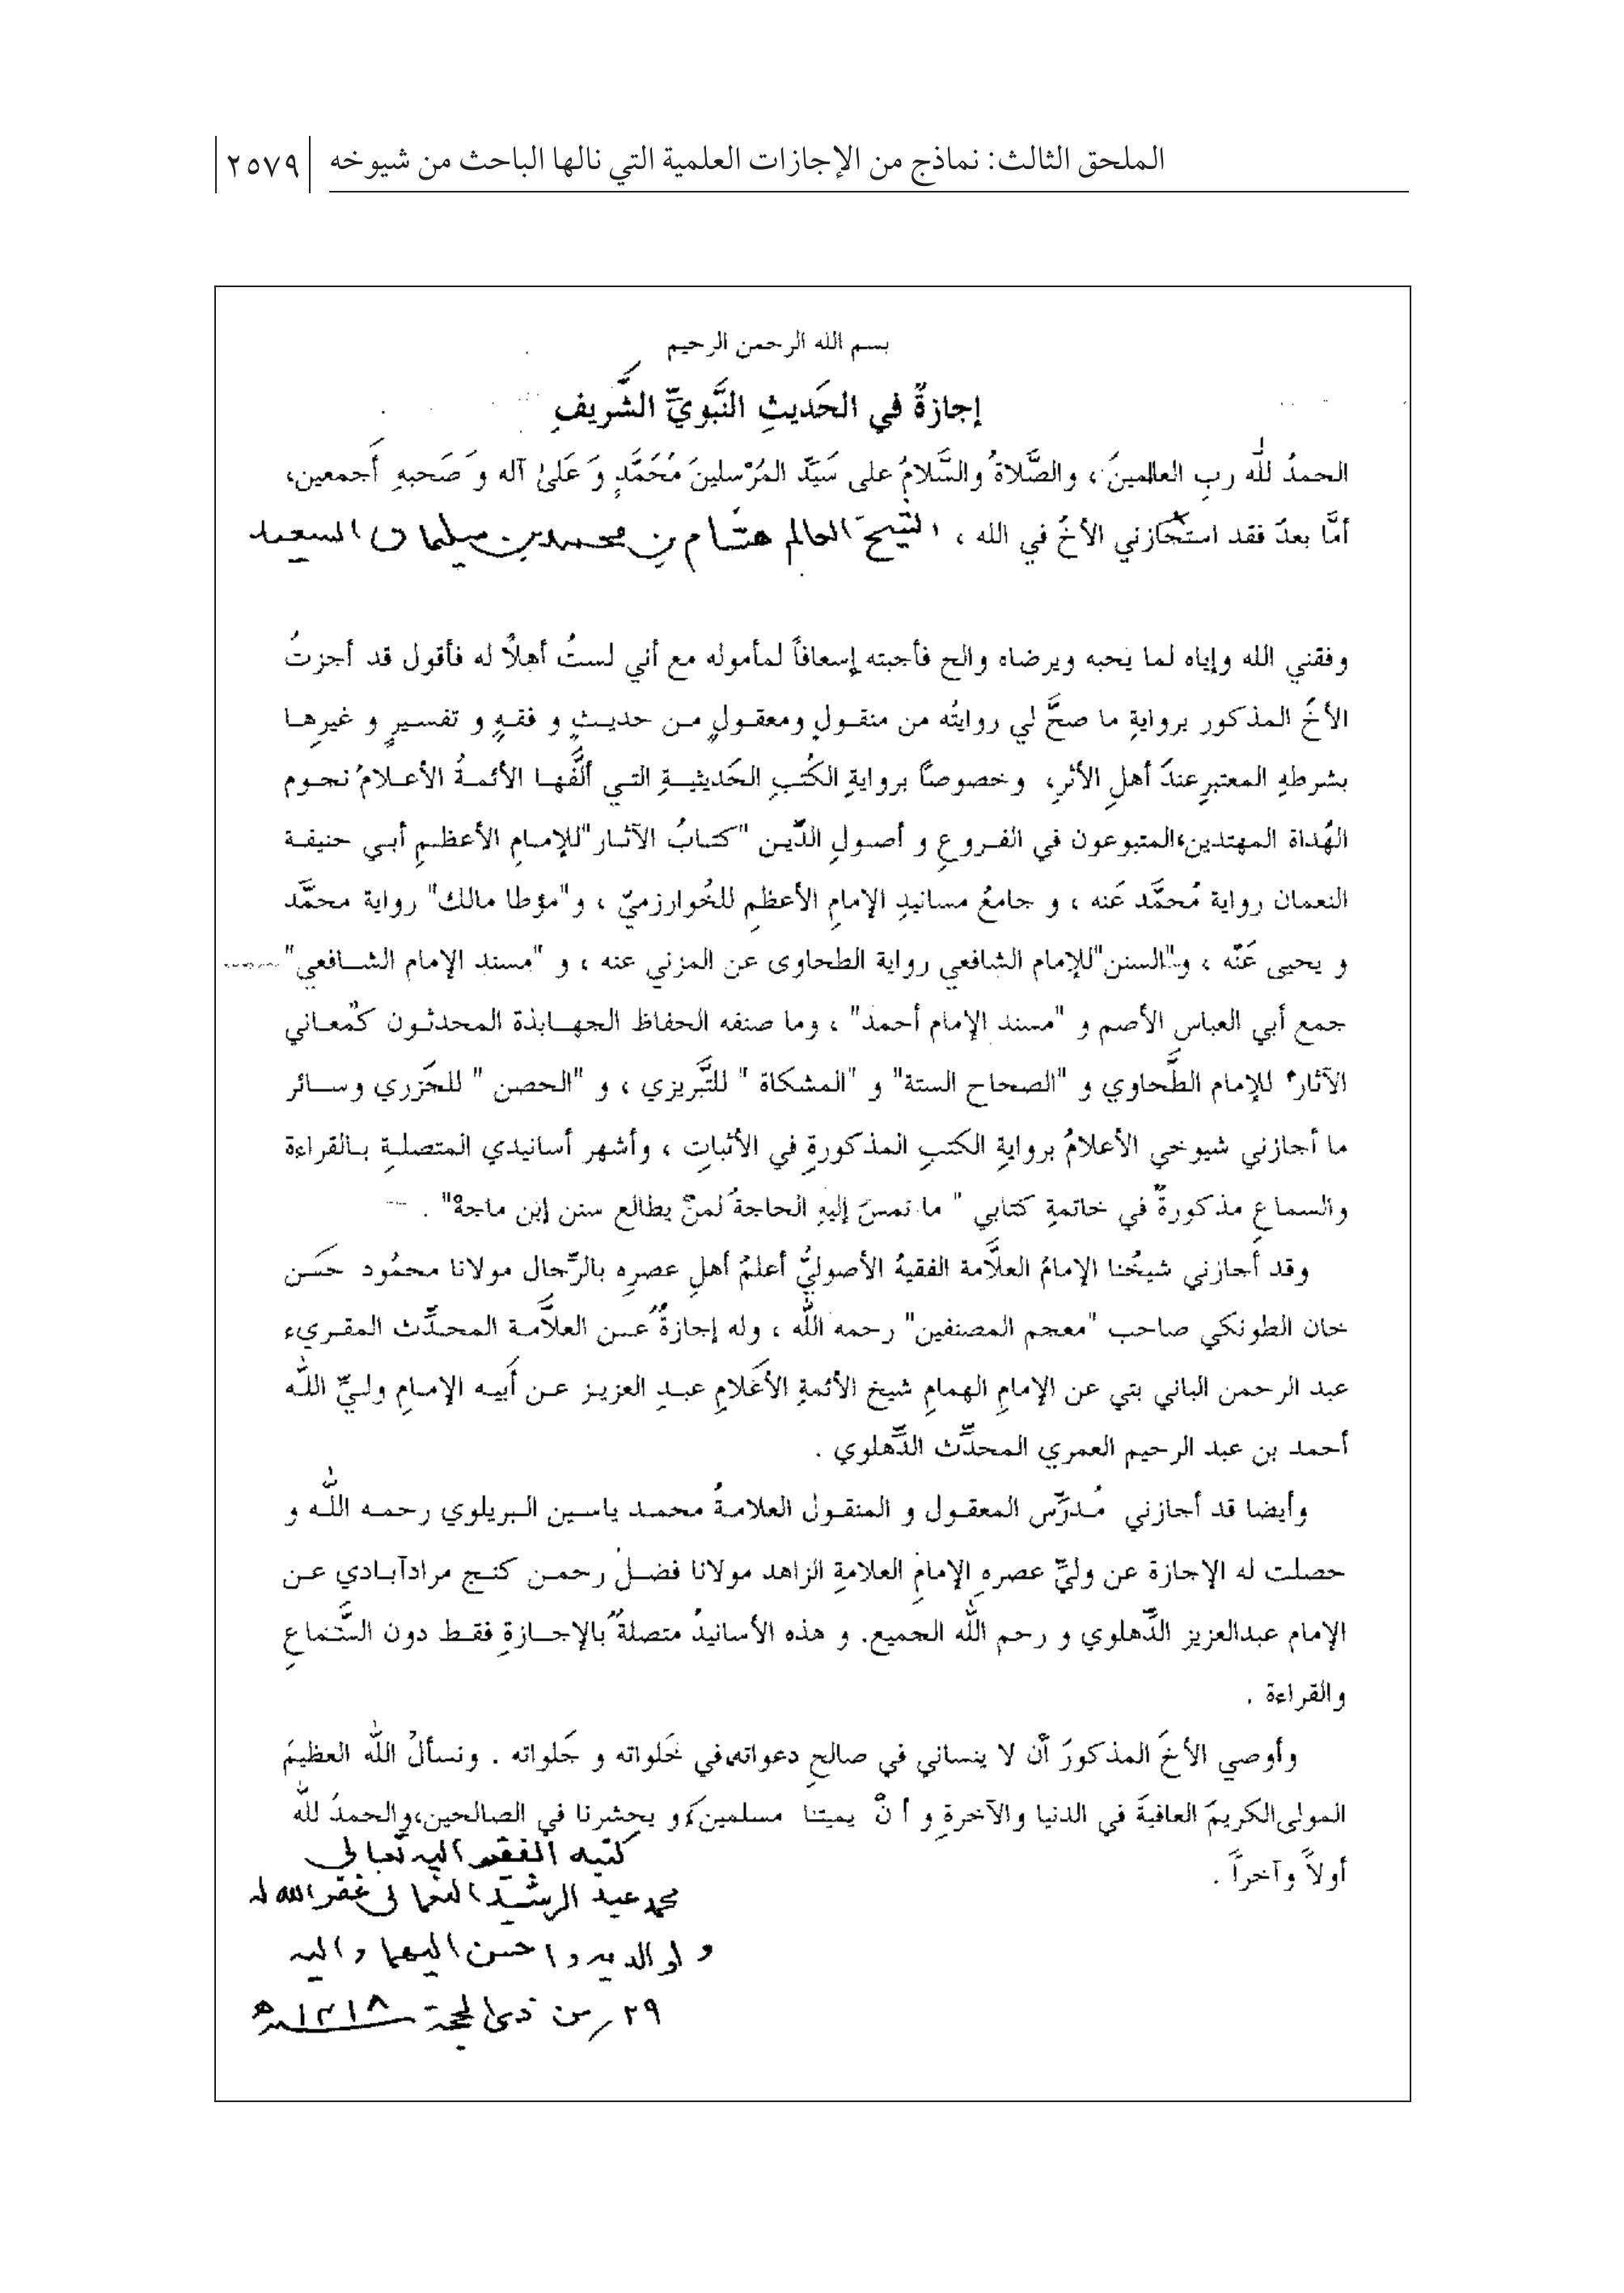 الملحق الثالث: نماذج من الإجازات العلمية التي نالها الباحث من شيوخه ٢٥٧٩
بسم الله الرحمن الرحيم
إجازةٌ في الحَديثِ النَّبويِّ الشَّريفِ
الحمدُ للّه ربِ العالمينَ، والصَّلاةُ والسَّلامُ على سَيَدِّ المُرْسلينَ مُحَمَّدٍ وَ عَلىٰ آله و صَحبهِ أجمعين،
أمَّا بعدُ فقد استجازني الأخُ في الله ، الشيخ العالم هشام بن محمد بن سليمان السعيد
وفقني الله وإياه لما يَحبه ويرضاه والح فأجبته إسعافاً لمأموله مع أني لستُ أهلاً له فأقول قد أجزتُ
الأخَ المذكور بروايةِ ما صحَّ لي روايتُه من منقولٍ ومعقولٍ من حديثٍ و فقهٍ و تفسيرٍ و غيرِها
بشرطهِ المعتبرِ عندَ أهلِ الأثرِ، وخصوصاً بروايةِ الكتبِ الحَديثيةِ التي ألَّفها الأئمةُ الأعلامُ نجوم
الهُداة المهتدين،المتبوعون في الفروعِ و أصولِ الدِّين "كتابُ الآثار"للإمامِ الأعظمِ أبي حنيفة
النعمان رواية مُحمَّد عَنه ، و جامعُ مسانيدِ الإمامِ الأعظمِ للخُوارزميّ ، و"مؤطا مالك" رواية محمَّد
و يحيى عَنّه ، و"السنن"للإمام الشافعي رواية الطحاوى عن المزني عنه ، و "مسند الإمام الشافعي"
جمع أبي العباس الأصم و "مسند الإمام أحمد" ، وما صنفه الحفاظ الجهابذة المحدثون كمعاني
الآثار للإمام الطَّحاوي و "الصحاح الستة" و "المشكاة " للتَّبريزي ، و "الحصن " للجَزري وسائر
ما أجازني شيوخي الأعلامُ بروايةِ الكتبِ المذكورةِ في الأثباتِ ، وأشهر أسانيدي المتصلةِ بالقراءة
والسماعِ مذكورةٌ في خاتمةِ كتابي " ما تمسّ إليهِ الحاجةُ لمنْ يطالع سنن إبن ماجة" .
وقد أجازني شيخُنا الإمامُ العلاَّمة الفقيهُ الأصوليُّ أعلمُ أهلِ عصرِه بالرِّجال مولانا محمُود حَسَن
خان الطونكي صاحب "معجم المصنفين" رحمه اللّه ، وله إجازةٌ عن العلاَّمة المحدِّث المقريء
عبد الرحمن الباني بتي عن الإمامِ الهمامِ شيخ الأئمةِ الأعَلامِ عبدِ العزيز عن أبيه الإمامِ وليِّ اللّه
أحمد بن عبد الرحيم العمري المحدِّث الدِّهلوي .
وأيضا قد أجازني مُدرِّس المعقول و المنقول العلامةُ محمد ياسين البريلوي رحمه اللّه و
حصلت له الإجازة عن وليِّ عصرهِ الإمامِ العلامةِ الزاهد مولانا فضل رحمن كنج مرادآبادي عن
الإمام عبدالعزيز الدِّهلوي و رحم اللّه الجميع. و هذه الأسانيدُ متصلةٌ بالإجازةِ فقط دون السَّماعِ
والقراءة .
وأوصي الأخَ المذكورَ أنّ لا ينساني في صالحِ دعواته،في خَلواته و جَلواته . ونسألُ اللّه العظيمَ
المولى الكريمَ العافيةَ في الدنيا والآخرةِ و أنْ يميتنا مسلمين،و يحشرنا في الصالحين،والحمدُ للّه
أولاً وآخراً .
كتبه الفقير اليه تعالى
محمد عبد الرشيد النعمانى غفر الله له
ولوالديه واحسن اليهما واليه
٢٩ من ذى الحجة ١٤١٨ھ